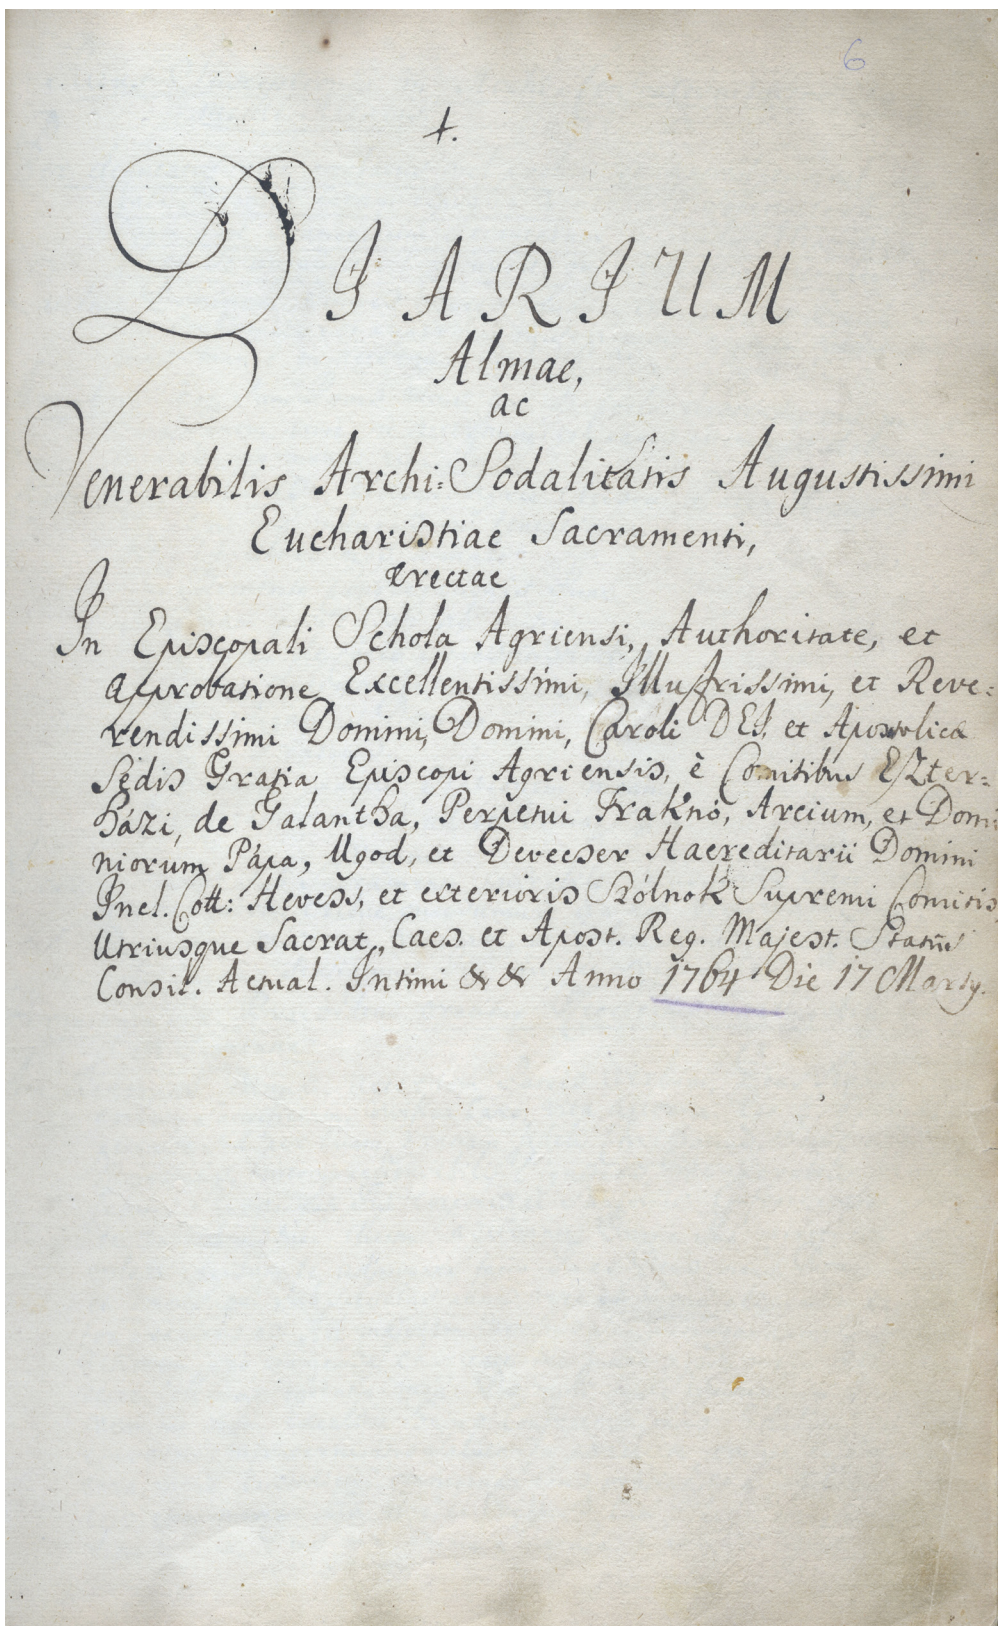 6
1.
DIARIUM
Almae,
ac
Venerabilis Archi=Sodalitatis Augustissimi
Eucharistiae Sacramenti,
Erectae
In Episcopali Schola Agriensi, Authoritate, et
Approbatione Excellentissimi, Illustrissimi, et Reve=
rendissimi Domini, Domini, Caroli DEI, et Apostolicæ
Sedis Gratia Episcopi Agriensis, è Comitibus Eszter=
házi, de Galantha, Perpetui Fraknó, Arcium, et Domi
niorum Pápa, Ugod, et Devecser Haereditarii Domini
Incl. Cott: Heves, et exterioris Szólnok Supremi Comitis
Utriusque Sacrat. Caes. et Apost. Reg. Majest. Statûs
Consil. Actual. Intimi & & Anno 1764 Die 17 Martÿ.